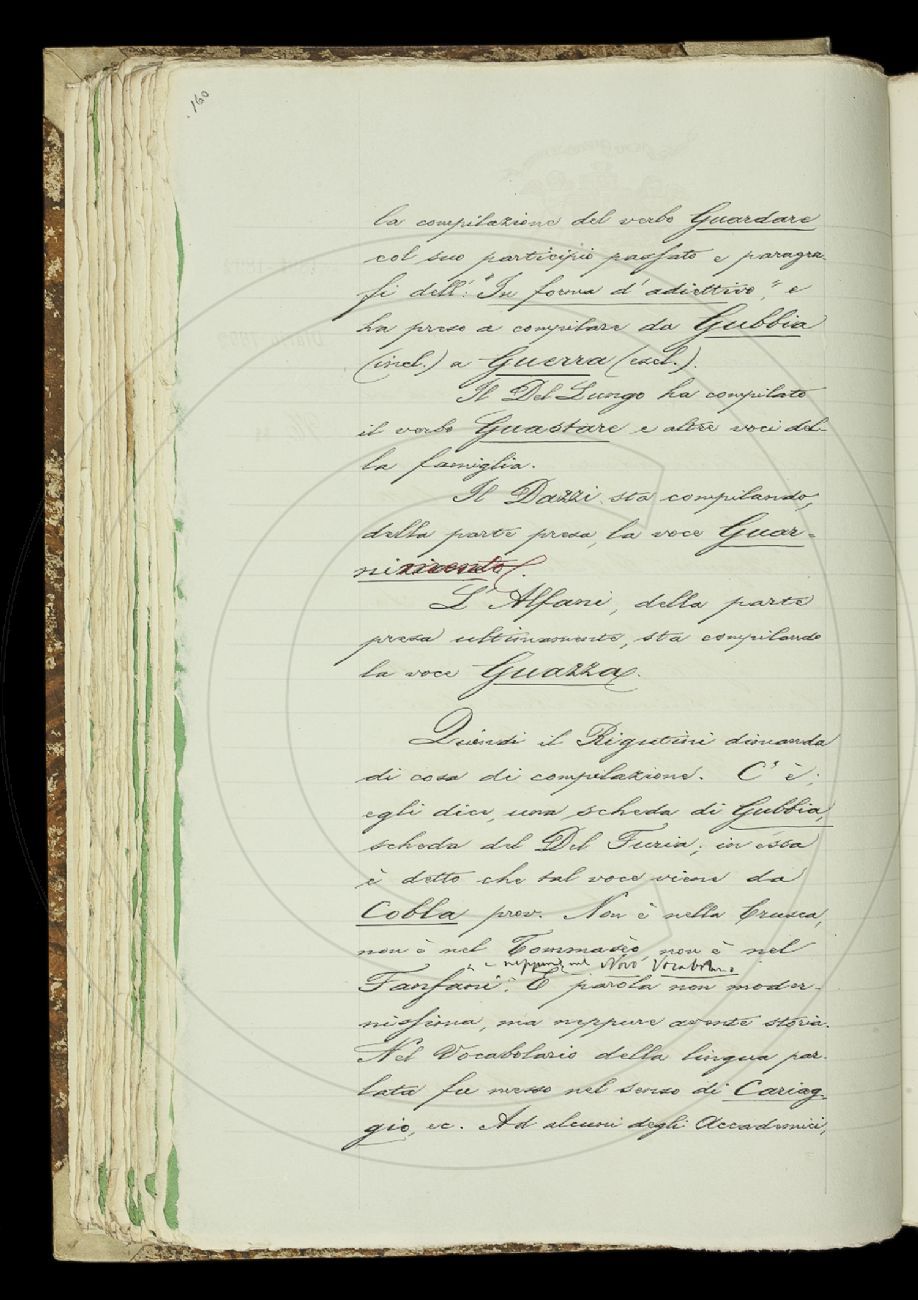 160
la compilazione del verbo Guardare
col suo participio passato e paragra-
fi dell': "In forma d'adiettivo," e
ha preso a compilare da Gubbia
(incl.) a Guerra (escl.).
Il Del Lungo ha compilato
il verbo Guastare e altre voci del-
la famiglia.
Il Dazzi sta compilando,
della parte presa, la voce Guar-
nimento.
L'Alfani, della parte
presa ultimamente, sta compilando
la voce Guazza.
Quindi il Rigutini dimanda
di cosa di compilazione. C'è,
egli dice, una scheda di Gubbia,
scheda del Del Furia; in essa
è detto che tal voce viene da
Cobla prov. Non è nella Crusca,
non è nel Tommasèo non è nel
e neppure nel Novo Vocabolario
Fanfani. È parola non moder-
nissima, ma neppure avente storia.
Nel Vocabolario della lingua par-
lata fu messo nel senso di Cariag-
gio, ec. Ad alcuni degli Accademici,